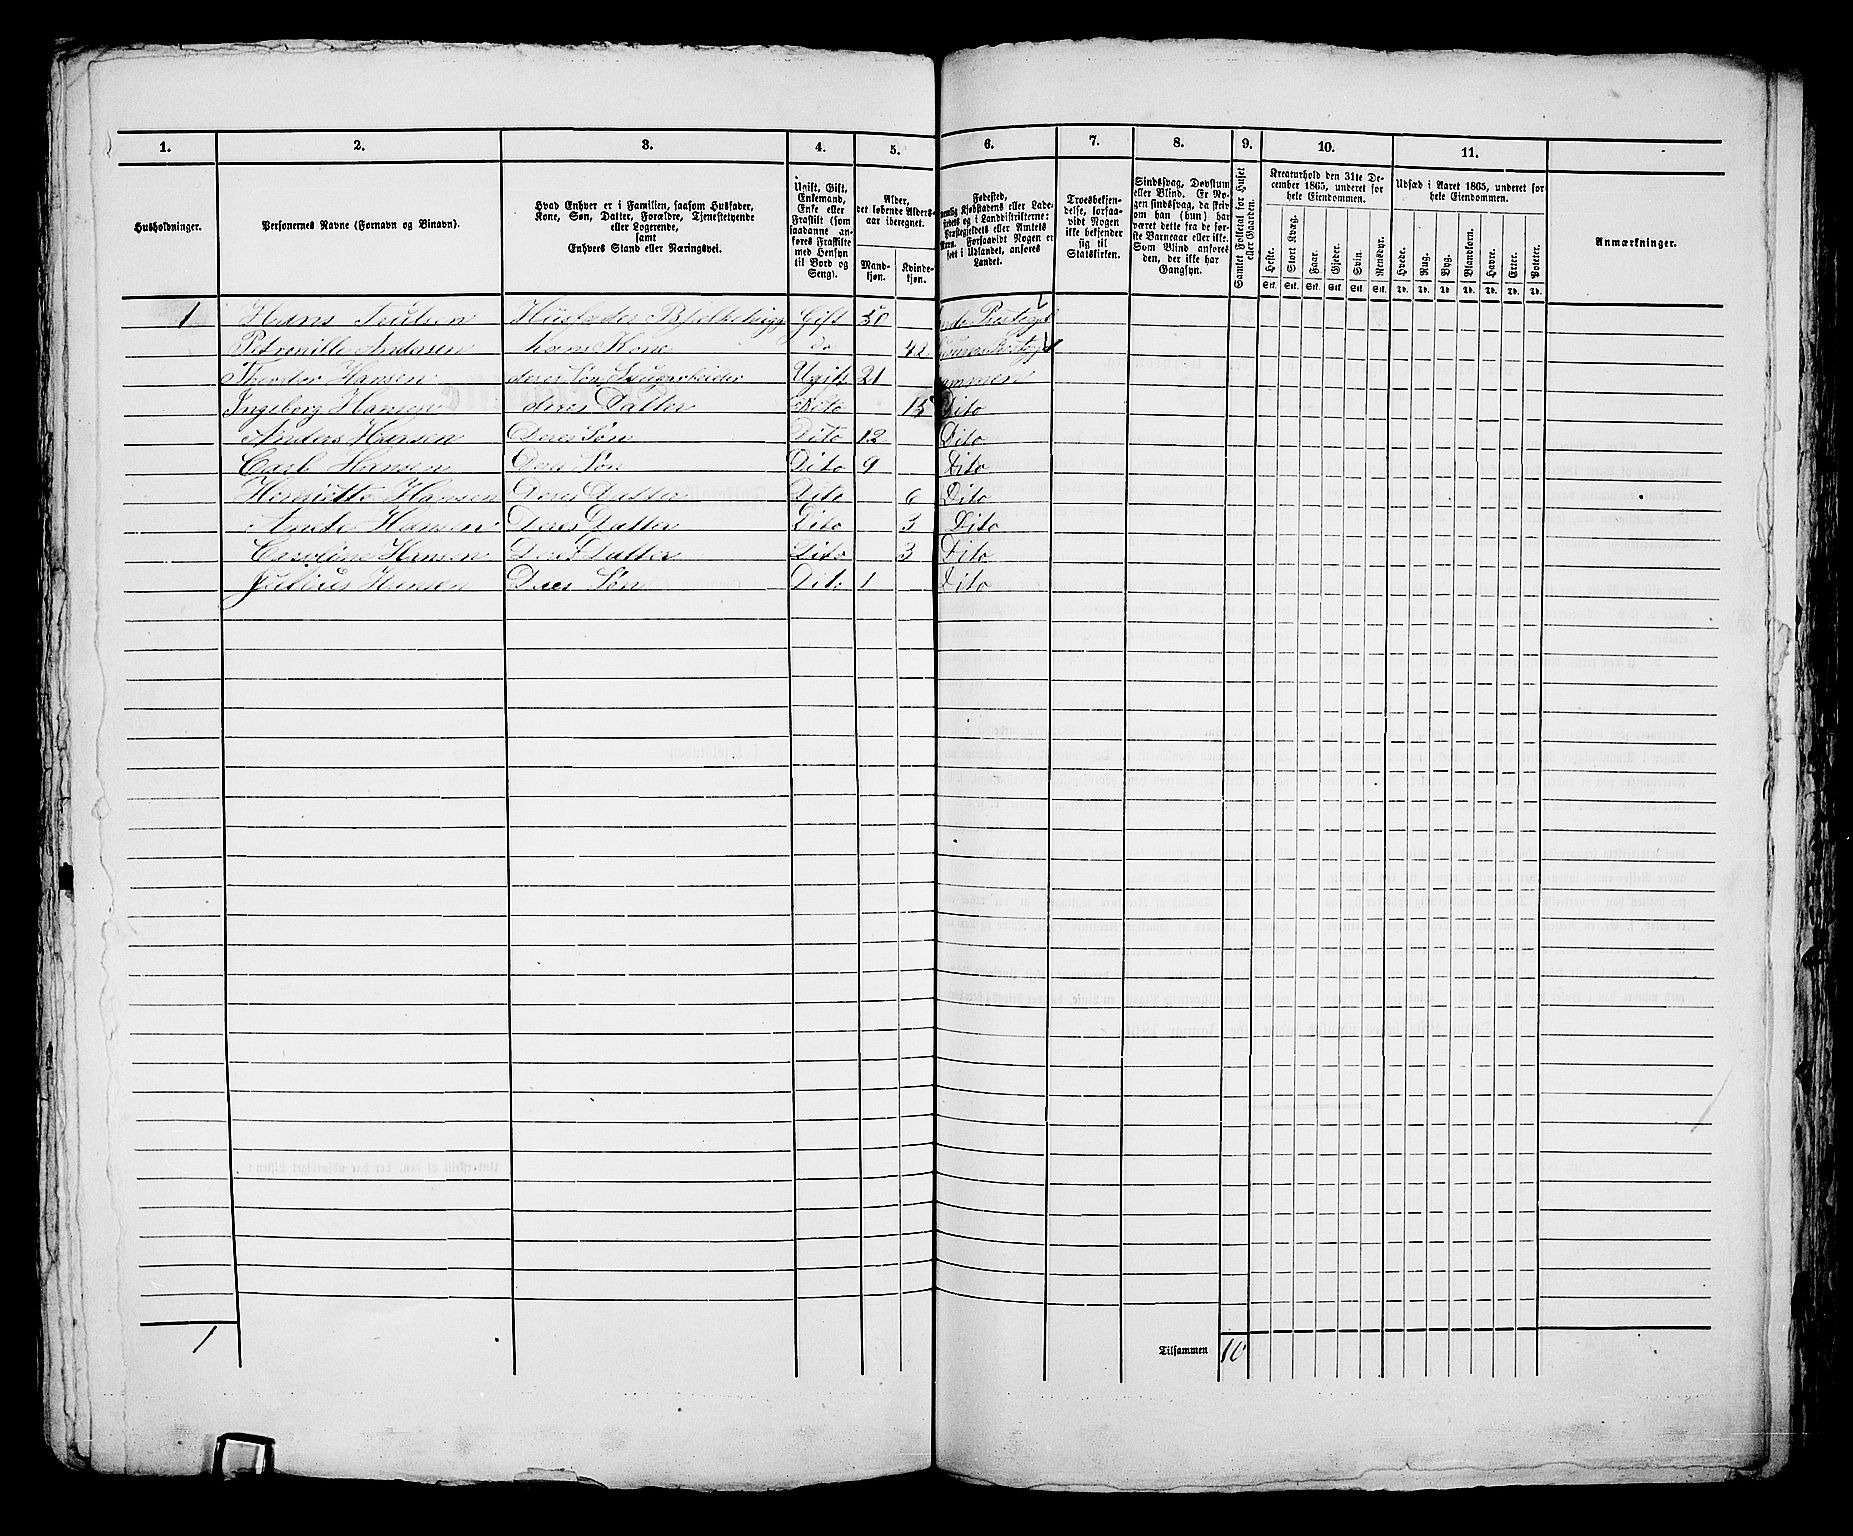 1. 2. 3. 4. 5. 6. 7. 8. 9. 10. 11.
Husholdninger.
Personernes Navne (Fornavn og Binavn).
Hvad Enhver er i Familien, saasom Husfader,
Kone, Søn, Datter, Forældre, Tjenestetyende
eller Logerende,
samt
Enhvers Stand eller Næringsvei.
Ugift, Gift,
Enkemand,
Enke eller
Fraskilt (som
saadanne an-
føres Fraskilte
med Hensyn
til Bord og
Seng).
Alder,
det løbende Alders-
aar iberegnet.
Mand-
kjøn.
Kvinde-
kjøn.
Fødested,
nemlig Kjøbstadens eller Lade-
stedets og i Landdistrikterne:
Præstegjeldets eller Amtets
Navn. Forsaavidt Nogen er
født i Udlandet, anføres
Landet.
Troesbekjen-
delse, forsaa-
vidt Nogen
ikke bekjender
sig til
Statskirken.
Sindssvag, Døvstum
eller Blind. Er No-
gen sindssvag, da skriv
om han (hun) har
været dette fra de før-
ste Barneaar eller ikke.
Som Blind anføres
den, der ikke har
Gangsyn.
Samlet Folketal for Huset
eller Gaarden.
Kreaturhold den 31te De-
cember 1865, underet for
hele Eiendommen.
Heste. Stort Kvæg. Faar. Gjeder. Svin. Rensdyr.
Stk. Stk. Stk. Stk. Stk. Stk.
Udsæd i Aaret 1865, underet for
hele Eiendommen.
Hvede. Rug. Byg. Blandkorn. Havre. Erter. Poteter.
Td. Td. Td. Td. Td. Td. Td.
Anmærkninger.
1 Hans Husfader Gift 50
Petronille Andersen hans Kone do 42
Theodor Hansen deres Søn Ugift 21
Ingeborg Hansen deres Datter Dito 15 Dito
Anders Hansen Deres Søn Dito 12 Dito
Carl Hansen Deres Søn Dito 9 Dito
Henriette Hansen Deres Datter Dito 6 Dito
Hansen Deres Datter Dito 3 Dito
Caroline Hansen Deres Datter Dito 3 Dito
Julius Hansen Deres Søn Dito 1 Dito
1
Tilsammen 10